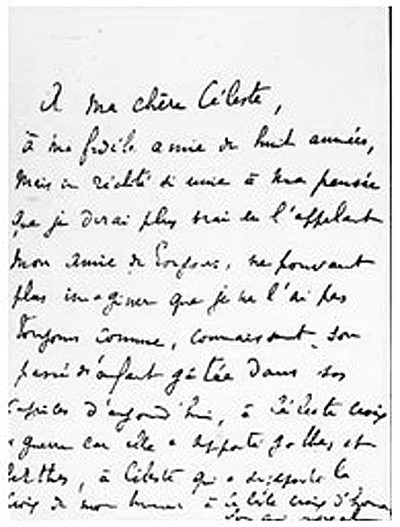 A ma chère Céleste,
à ma fidèle amie de huit années,
mais en réalité si unie à ma pensée
que je dirai plus vrai en l'appelant
mon amie de toujours, ne pouvant
plus imaginer que je ne l'ai pas
toujours connue, connaissant son
passé d'enfant gâtée dans ses
caprices d'aujourd'hui, à Céleste croix
de guerre car elle a supporté gothas et
berthas, à Céleste qui a supporté la
croix de mon humeur à Céleste croix d'honneur